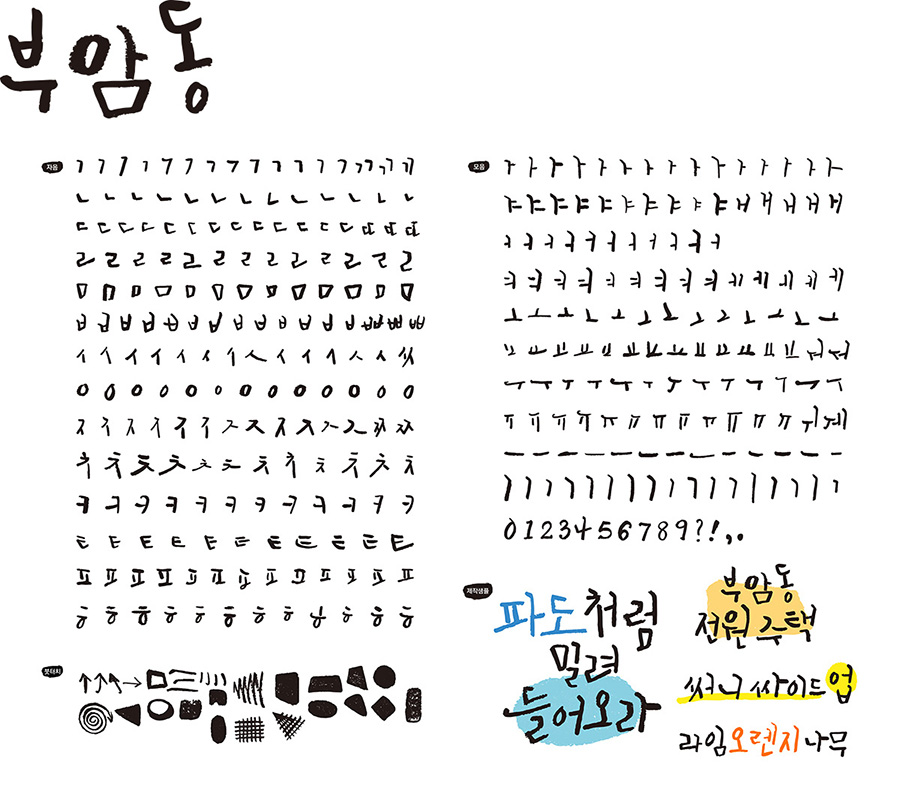 부암동
자음
ㄱㄱㄱㄱㄱㄱㄱㄱㄱㄱㄱㄱㄱㄲㄲㄲ
ㄴㄴㄴㄴㄴㄴㄴㄴㄴㄴㄴㄴㄴㄴ
ㄷㄷㄷㄷㄷㄷㄷㄷㄷㄷㄷㄸㄸㄸ
ㄹㄹㄹㄹㄹㄹㄹㄹㄹㄹㄹㄹㄹ
ㅁㅁㅁㅁㅁㅁㅁㅁㅁㅁㅁㅁㅁ
ㅂㅂㅂㅂㅂㅂㅂㅂㅂㅂㅂㅂㅂㅃㅃㅃ
ㅅㅅㅅㅅㅅㅅㅅㅅㅅㅅㅅㅅㅅㅆ
ㅇㅇㅇㅇㅇㅇㅇㅇㅇㅇㅇㅇㅇ
ㅈㅈㅈㅈㅈㅈㅈㅈㅈㅈㅈㅈㅉㅉ
ㅊㅊㅊㅊㅊㅊㅊㅊㅊㅊㅊㅊ
ㅋㅋㅋㅋㅋㅋㅋㅋㅋㅋㅋㅋ
ㅌㅌㅌㅌㅌㅌㅌㅌㅌㅌㅌ
ㅍㅍㅍㅍㅍㅍㅍㅍㅍㅍㅍㅍㅍ
ㅎㅎㅎㅎㅎㅎㅎㅎㅎㅎㅎㅎ
붓터치
모음
ㅏㅏㅏㅏㅏㅏㅏㅏㅏㅏㅏㅏㅏㅏㅏ
ㅑㅑㅑㅑㅑㅑㅑㅑㅑㅑㅐㅐㅐㅐㅐ
ㅓㅓㅓㅓㅓㅓㅓㅓㅓㅓ
ㅕㅕㅕㅕㅕㅕㅕㅕㅕㅕㅔㅔㅔㅔㅔ
ㅗㅗㅗㅗㅗㅗㅗㅗㅗㅗㅗㅗㅗ
ㅛㅛㅛㅛㅛㅛㅛㅛㅛㅛㅛㅛ
ㅜㅜㅜㅜㅜㅜㅜㅜㅜㅜㅜㅜㅜ
ㅠㅠㅠㅠㅠㅠㅠㅠㅠㅠㅠㅠ
ㅡㅡㅡㅡㅡㅡㅡㅡㅡㅡㅡㅡㅡ
ㅣㅣㅣㅣㅣㅣㅣㅣㅣㅣㅣㅣㅣㅣㅣㅣ
0123456789?!,.
제작샘플
파도처럼
밀려
들어오라
부암동
전원주택
써니 싸이드 업
라임오렌지나무